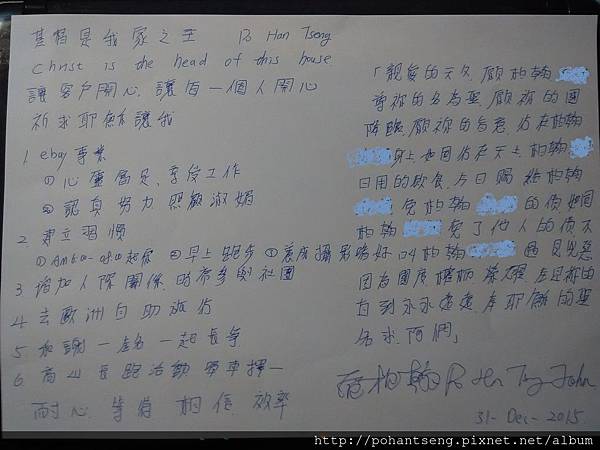 基督是我家之主 Po Han Tseng
Christ is the head of this house
讓客戶開心,讓每一個人開心
祈求耶穌讓我
1. ebay 專業
① 心靈富足、享受工作
② 認真努力 照顧淑媚
2. 建立習慣
① 起床 ② 早上跑步 ③ 養成攝影嗜好
3 增加人際關係、時常參與社團
4 去歐洲自助旅行
5 和謝 一起長等
6 高山長跑活動 單車擇一
耐心 等待 相信 效率
「親愛的天父,願柏翰
尊祢的名為聖,願祢的國
降臨,願祢的旨意,行在柏翰
身上,如同行在天上,柏翰
日用的飲食,今日賜給柏翰
免柏翰 的債,如同
柏翰 免了他人的債,不
叫柏翰 遇見兇惡
因為國度、權柄、榮耀,全是祢的
直到永永遠遠,奉耶穌的聖
名求,阿們」
曾柏翰 Po Han Tseng John
31-Dec-2015
http://pohantseng.pixnet.net/album